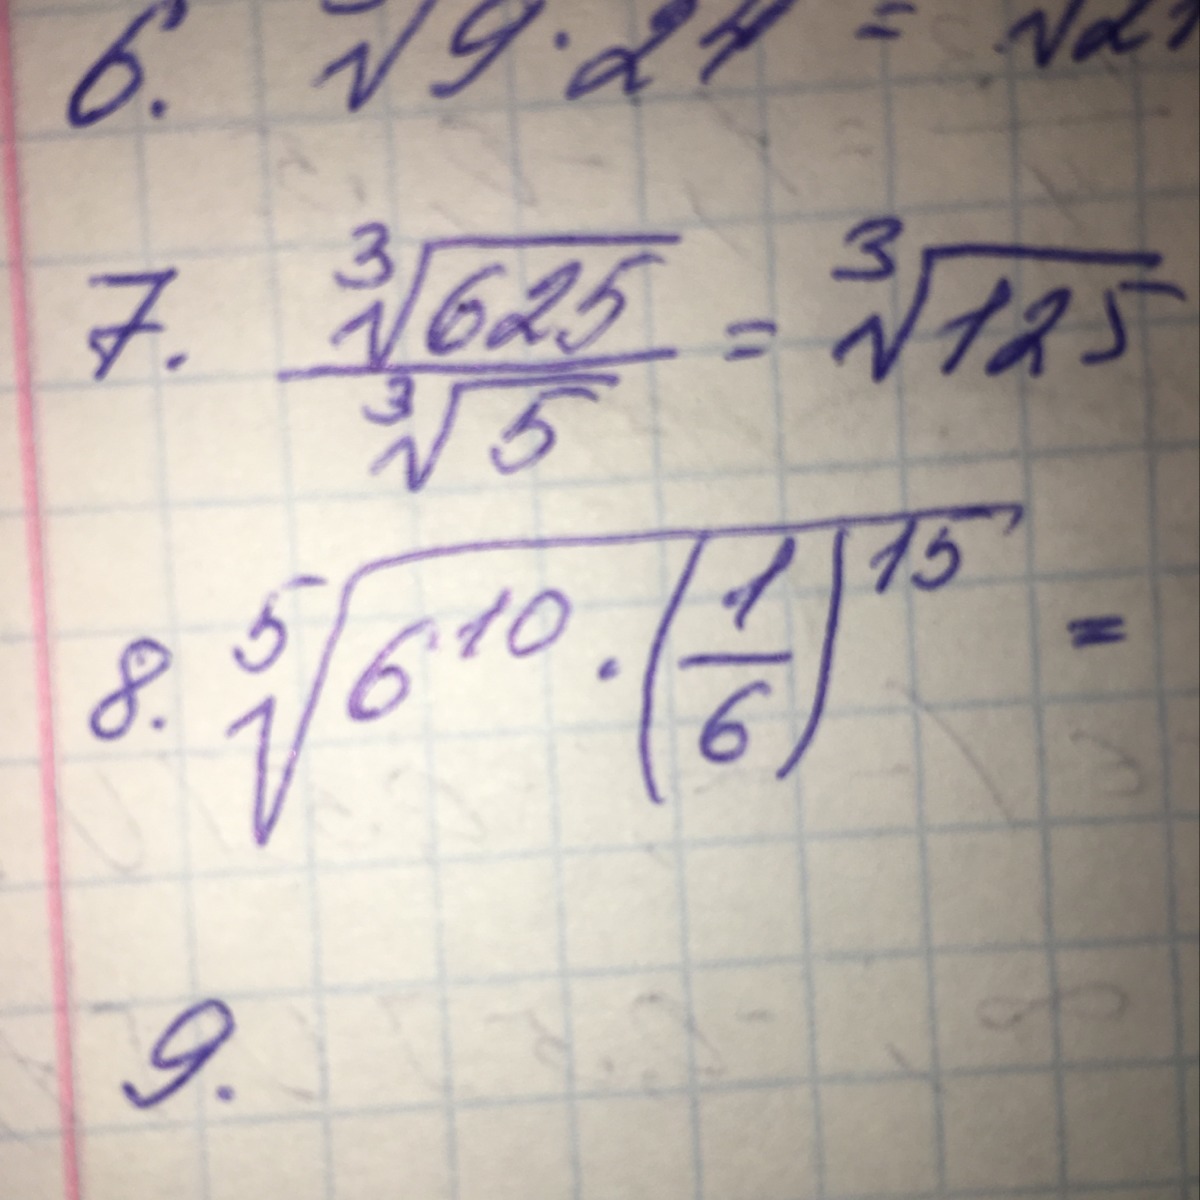 6. √9·24 = √21
7. ³√625 / ³√5 = ³√125
8. ⁵√6¹⁰·(1/6)¹⁵ =
9.